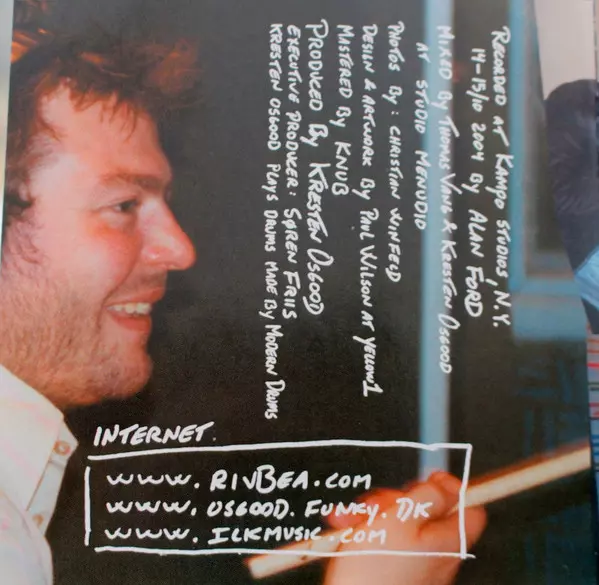 RECORDED AT KAMPO STUDIOS, N.Y.
14-15/10 2004 BY ALAN FORD
MIXED BY THOMAS VANG & KRESTEN OSGOOD
AT STUDIO MENUDIO
PHOTOS BY: CHRISTIAN WINFELD
DESIGN & ARTWORK BY PAUL WILSON AT YELLOW1
MASTERED BY KNUB
PRODUCED BY KRESTEN OSGOOD
EXECUTIVE PRODUCER: SØREN FRIIS
KRESTEN OSGOOD PLAYS DRUMS MADE BY MODERN DRUMS
INTERNET.
WWW. RIVBEA.COM
WWW. OSGOOD. FUNKY. DK
WWW. ILKMUSIC.COM